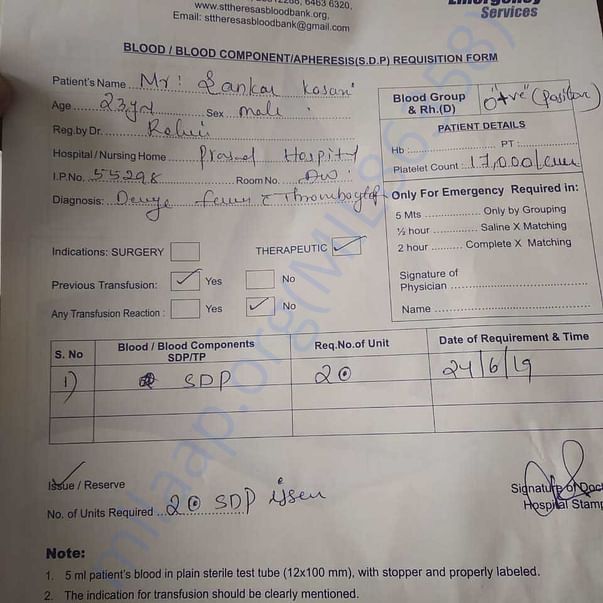 www.sttheresasbloodbank.org,
Email: sttheresasbloodbank@gmail.com
Services
BLOOD / BLOOD COMPONENT/APHERESIS(S.D.P) REQUISITION FORM
Patient's Name Mr: Sankar Kasani
Age 23yrs Sex male
Reg.by Dr.
Hospital / Nursing Home Prasad Hospity
I.P.No. 55298 Room No.
Diagnosis: Denge fever
Blood Group & Rh.(D) "O"+ve (Positive)
PATIENT DETAILS
Hb : PT :
Platelet Count : 17,000/cum
Only For Emergency Required in:
5 Mts Only by Grouping
½ hour Saline X Matching
2 hour Complete X Matching
Signature of
Physician
Name
Indications: SURGERY THERAPEUTIC
Previous Transfusion: Yes No
Any Transfusion Reaction : Yes No
S. No Blood / Blood Components SDP/TP Req.No.of Unit Date of Requirement & Time
1) SDP 20 24/6/19
Issue / Reserve
No. of Units Required 20 SDP
Signature of Doct
Hospital Stamp
Note:
1. 5 ml patient's blood in plain sterile test tube (12x100 mm), with stopper and properly labeled.
2. The indication for transfusion should be clearly mentioned.